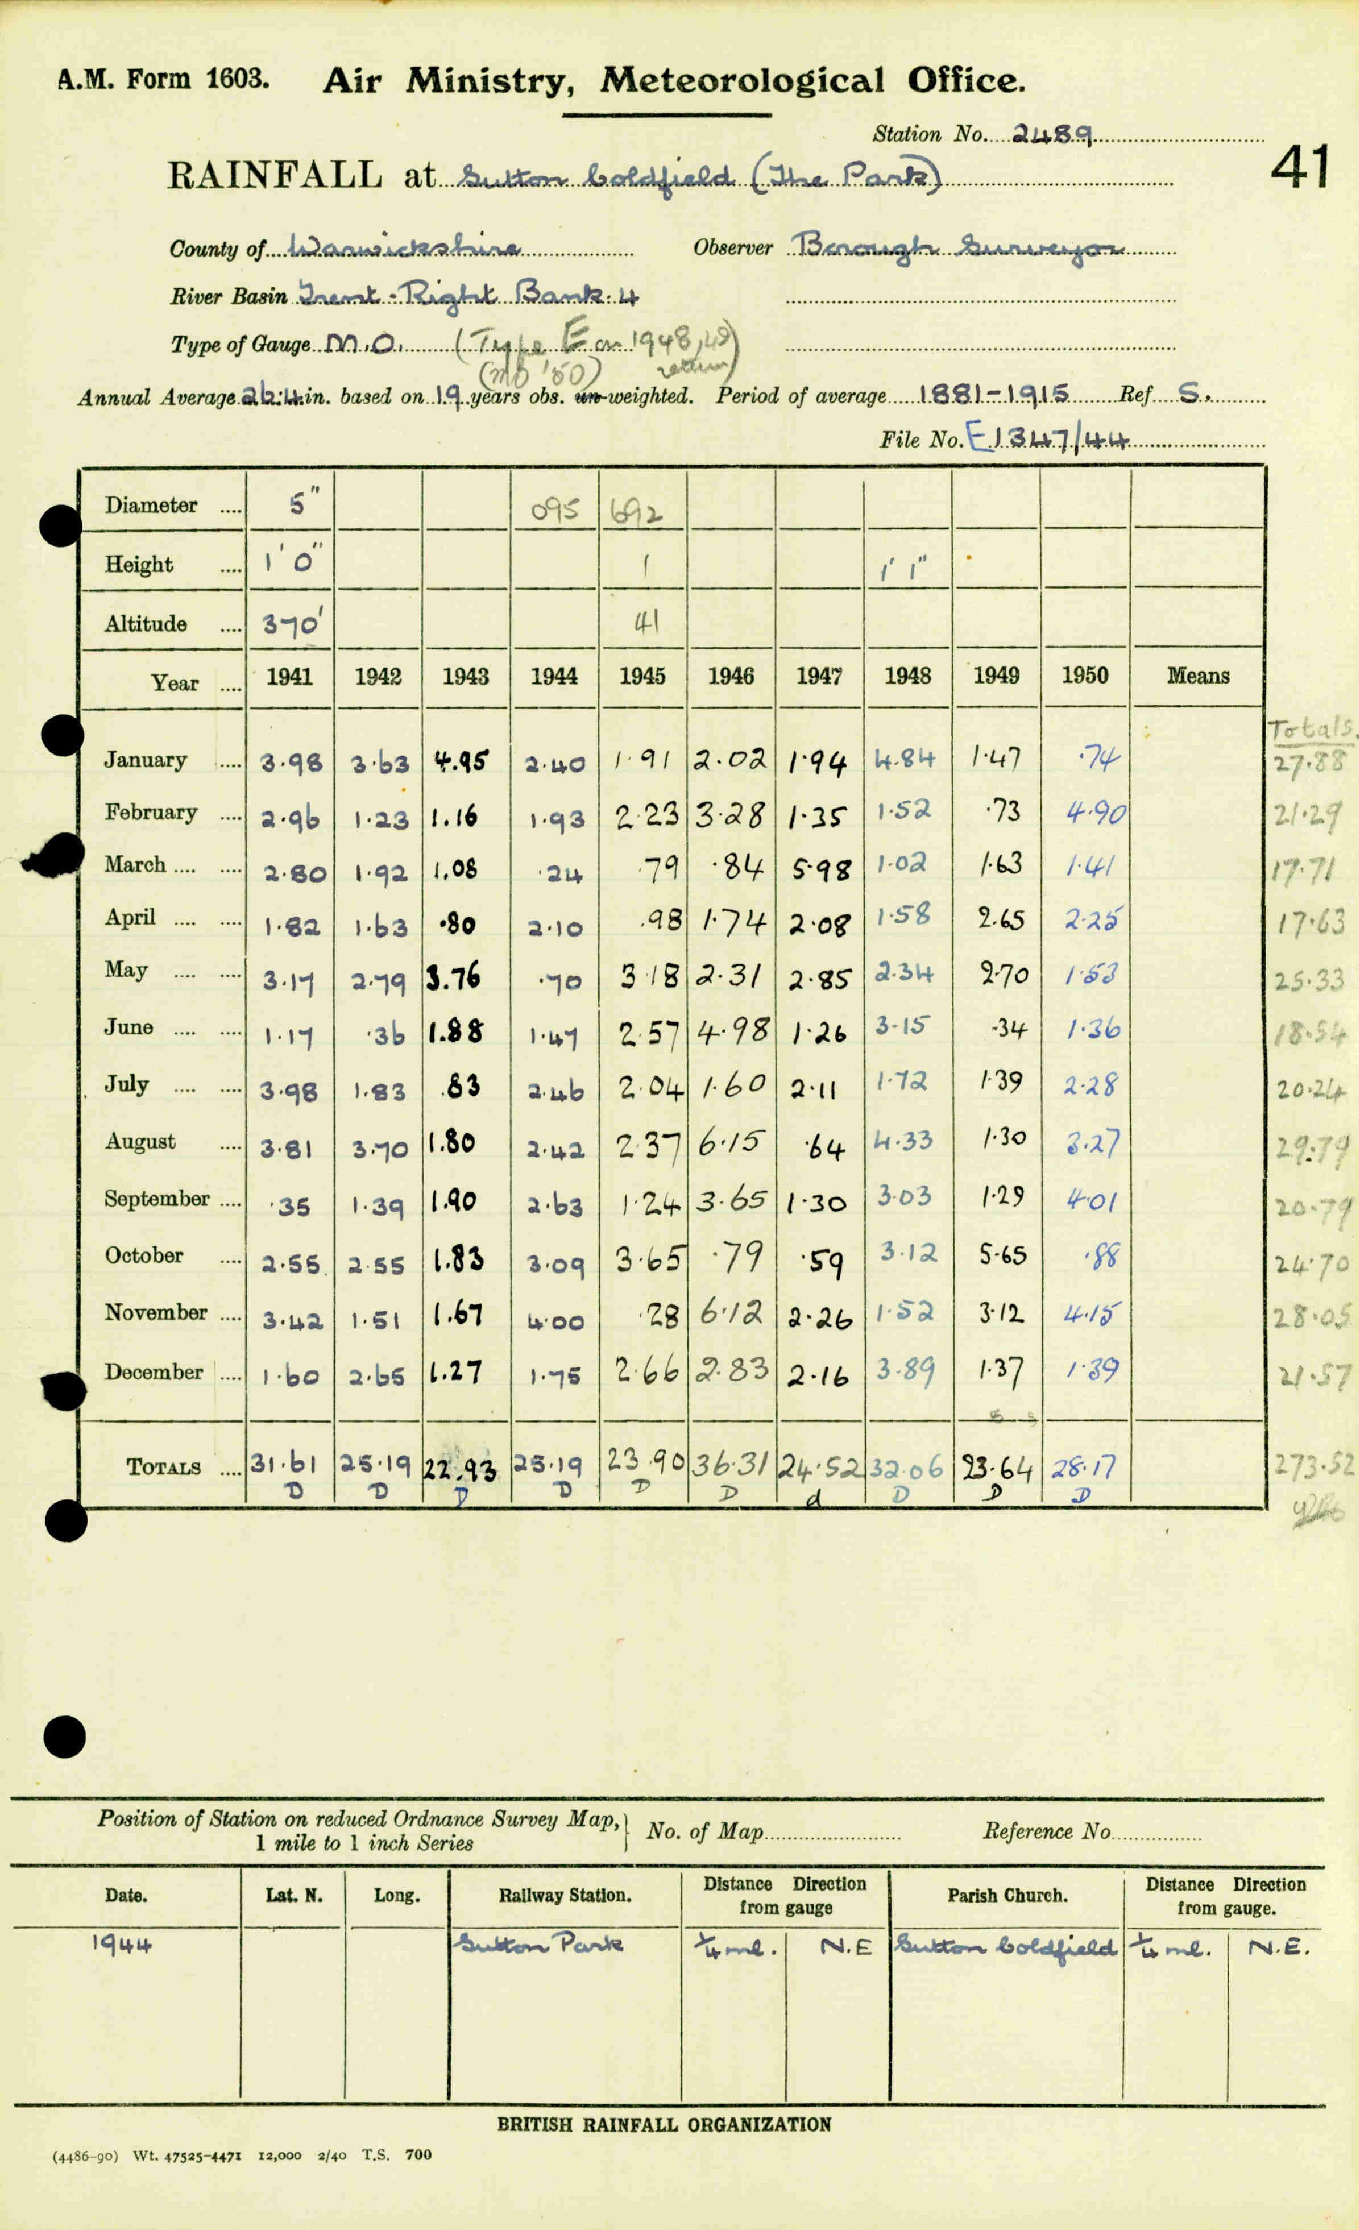 A.M. Form 1603. Air Ministry, Meteorological Office.
Station No. 2489
41
RAINFALL at Sutton Coldfield (The Park)
County of Warwickshire Observer Borough Surveyor
River Basin Trent - Right Bank. 4
Type of Gauge M.O. (Type E on 1948, 49 return)
(MO '50)
Annual Average 26.4 in. based on 19 years obs. un-weighted. Period of average 1881-1915 Ref S.
File No. E 1347/44
Diameter .... 5" 095 692
Height .... 1' 0" 1 1' 1"
Altitude .... 370' 41
Year .... 1941 1942 1943 1944 1945 1946 1947 1948 1949 1950 Means
Totals.
January .... 3.98 3.63 4.95 2.40 1.91 2.02 1.94 4.84 1.47 .74 27.88
February .... 2.96 1.23 1.16 1.93 2.23 3.28 1.35 1.52 .73 4.90 21.29
March .... .... 2.80 1.92 1.08 .24 .79 .84 5.98 1.02 1.63 1.41 17.71
April .... .... 1.82 1.63 .80 2.10 .98 1.74 2.08 1.58 2.65 2.25 17.63
May .... .... 3.17 2.79 3.76 .70 3.18 2.31 2.85 2.34 2.70 1.53 25.33
June .... .... 1.17 .36 1.88 1.47 2.57 4.98 1.26 3.15 .34 1.36 18.54
July .... .... 3.98 1.83 .83 2.46 2.04 1.60 2.11 1.72 1.39 2.28 20.24
August .... 3.81 3.70 1.80 2.42 2.37 6.15 .64 4.33 1.30 3.27 29.79
September .... .35 1.39 1.90 2.63 1.24 3.65 1.30 3.03 1.29 4.01 20.79
October .... 2.55 2.55 1.83 3.09 3.65 .79 .59 3.12 5.65 .88 24.70
November .... 3.42 1.51 1.67 4.00 .28 6.12 2.26 1.52 3.12 4.15 28.05
December .... 1.60 2.65 1.27 1.75 2.66 2.83 2.16 3.89 1.37 1.39 21.57
TOTALS .... 31.61 25.19 22.93 25.19 23.90 36.31 24.52 32.06 23.64 28.17 273.52
D D D D D D d D D D
Position of Station on reduced Ordnance Survey Map, 1 mile to 1 inch Series } No. of Map Reference No
Date. Lat. N. Long. Railway Station. Distance Direction from gauge Parish Church. Distance Direction from gauge.
1944 Sutton Park ¼ ml. N.E Sutton Coldfield ¼ ml. N.E.
BRITISH RAINFALL ORGANIZATION
(4486-90) Wt. 47525-4471 12,000 2/40 T.S. 700